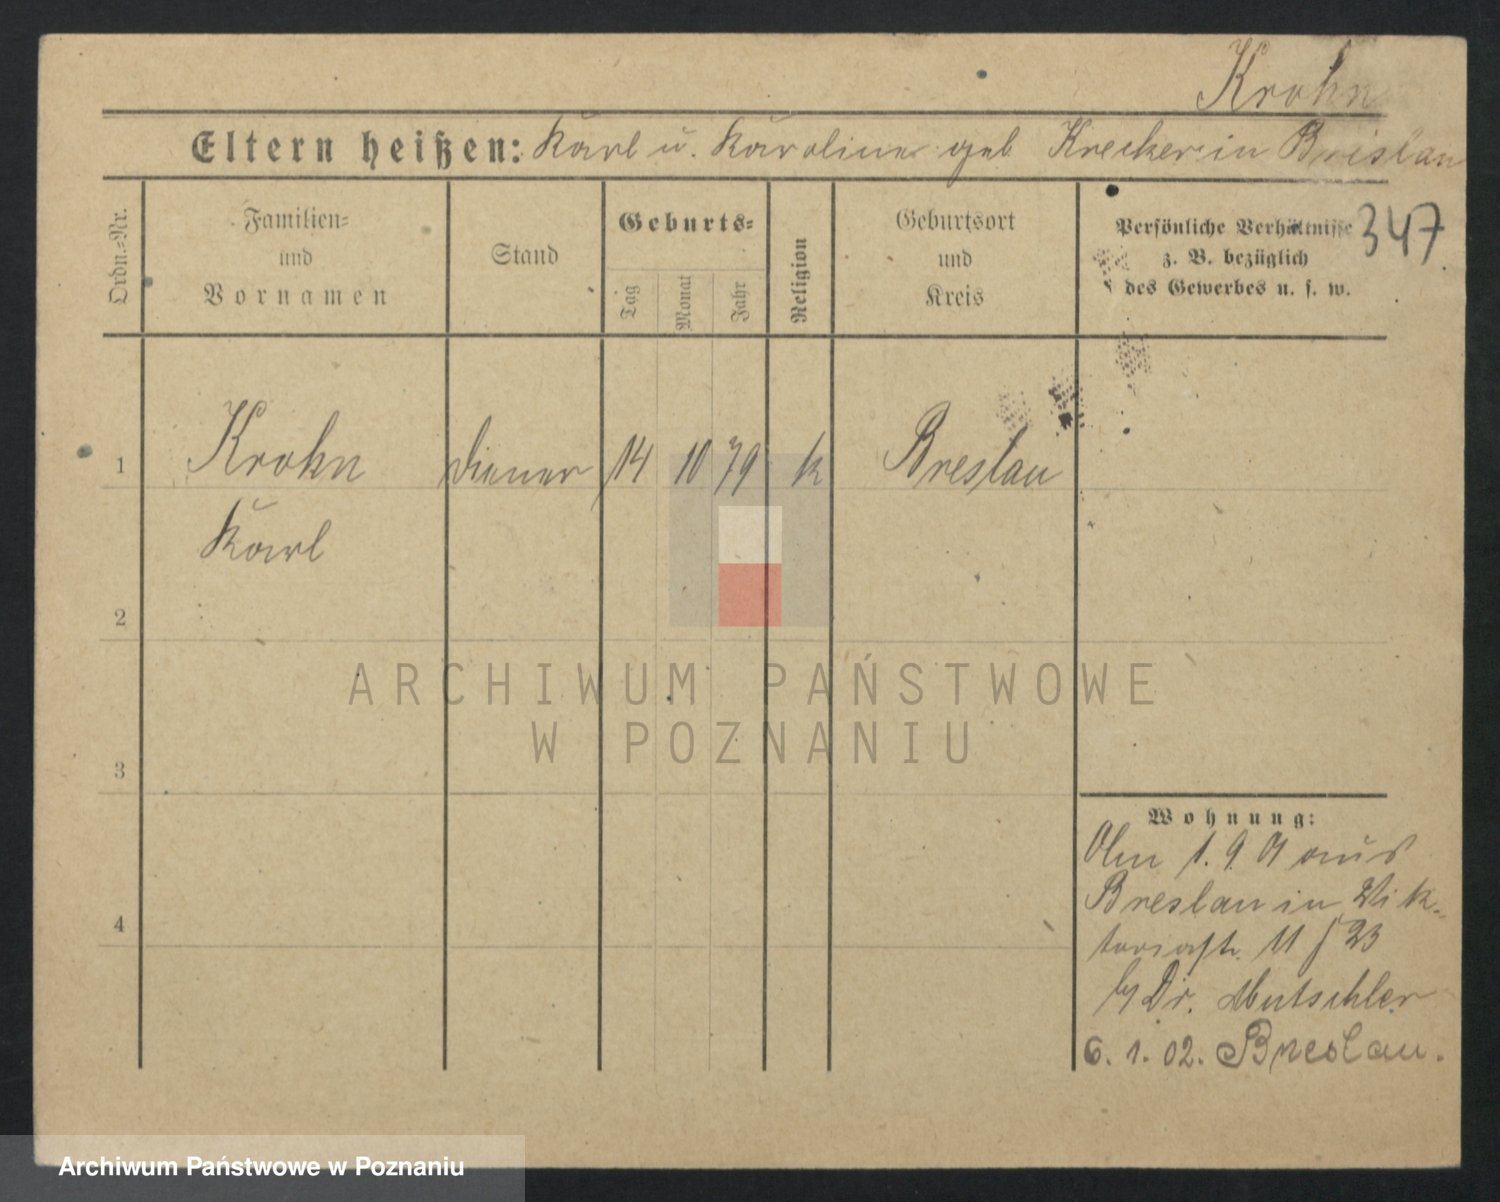 Krohn
Eltern heißen: Karl u. Karoline geb Krecker in Breslau
347
Ordn.=Nr.
Familien=
und
Vornamen
Stand
Geburts=
Tag
Monat
Jahr
Religion
Geburtsort
und
Kreis
Persönliche Verhältnisse
z. B. bezüglich
des Gewerbes u. s. w.
1 Krohn Diener 14 10 79 k Breslau
Karl
2
3
4
Wohnung:
Am 1. 9 01 aus
Breslau in Vik-
toriastr. 11 23
by Dr. Mutschler
6. 1. 02. Breslau.
ARCHIWUM PAŃSTWOWE
W POZNANIU
Archiwum Państwowe w Poznaniu